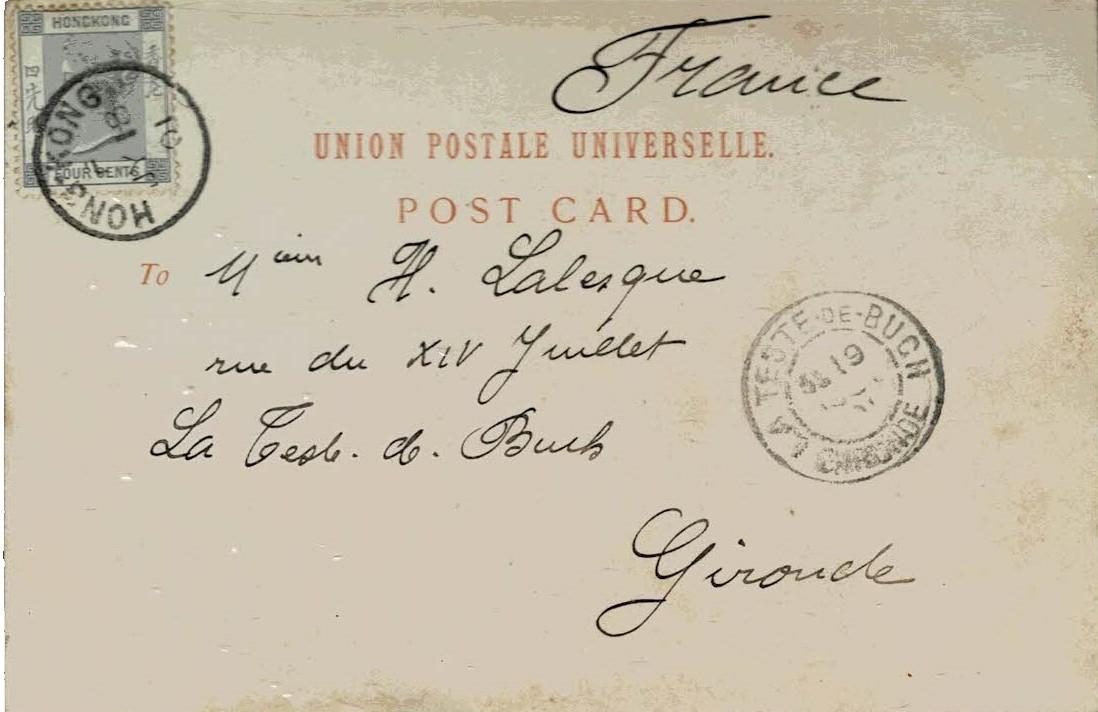 HONGKONG
四先
FOUR CENTS
HONG KONG
France
UNION POSTALE UNIVERSELLE.
POST CARD.
To
H. Lalesque
rue du XIV Juillet
La Teste. d. Buch
Gironde
LA TESTE-DE-BUCH
GIRONDE
19